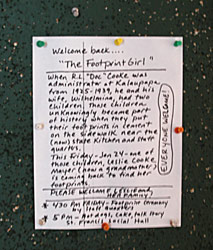 Welcome back....
"The Footprint Girl"
When R.L. "Doc" Cooke was
administrator at Kalaupapa
from 1925-1939, he and his
wife, Wilhelmina, had two
children. Those children
unknowingly became part
of history when they put
their footprints in cement
on the sidewalk near the
(now) State Kitchen and staff
quarters.
This Friday - Jan 24 - one of
those children, Leslie Cooke
Mayer (now a grandmother)
is coming back to find her
footprints.
EVERYONE WELCOME!
PLEASE WELCOME LESLIE AND
HER FAMILY!
4:30 pm Friday - Footprint Ceremony
Staff Quarters
5 pm - Hot dogs, cake, talk story
St. Francis Social Hall